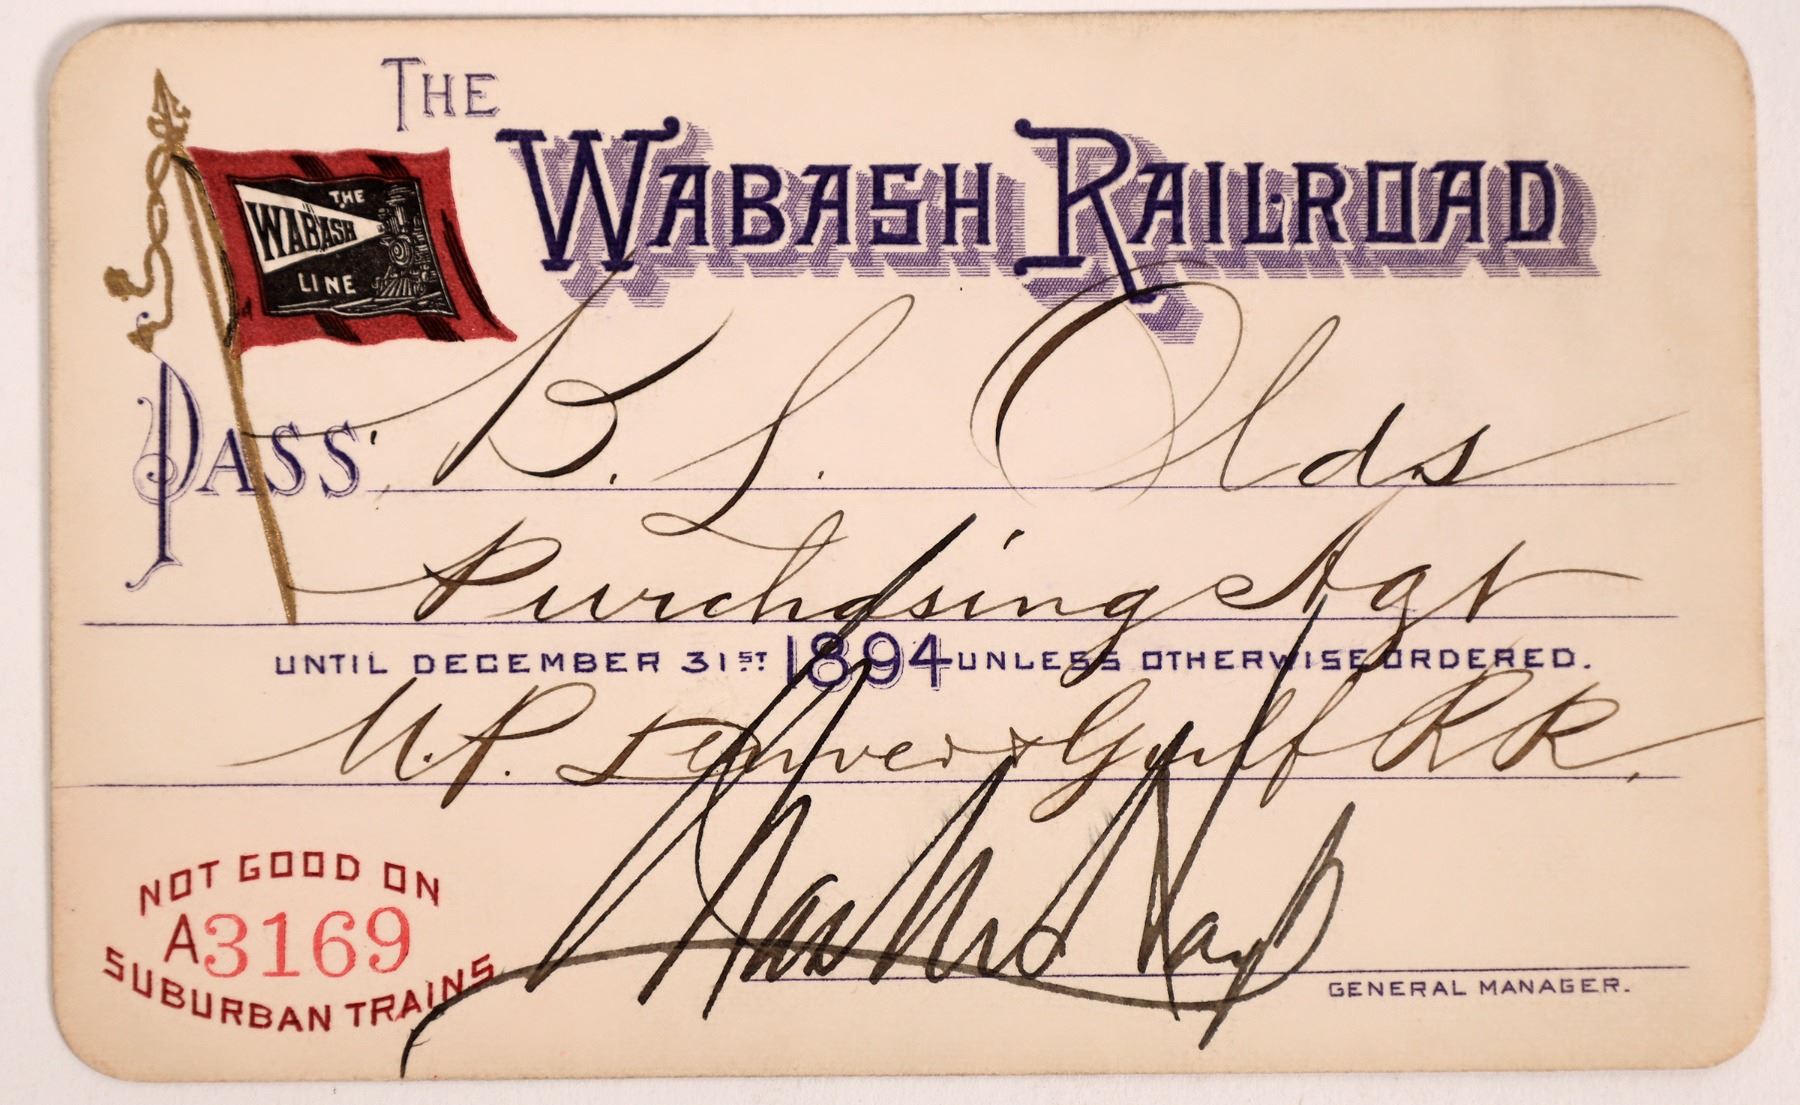 THE
WABASH RAILROAD
THE
WABASH
LINE
PASS B. L. Olds
Purchasing Agt
UNTIL DECEMBER 31ST 1894 UNLESS OTHERWISE ORDERED.
U.P. Denver & Gulf RR.
NOT GOOD ON
A3169
SUBURBAN TRAINS
Chas M Hays
GENERAL MANAGER.